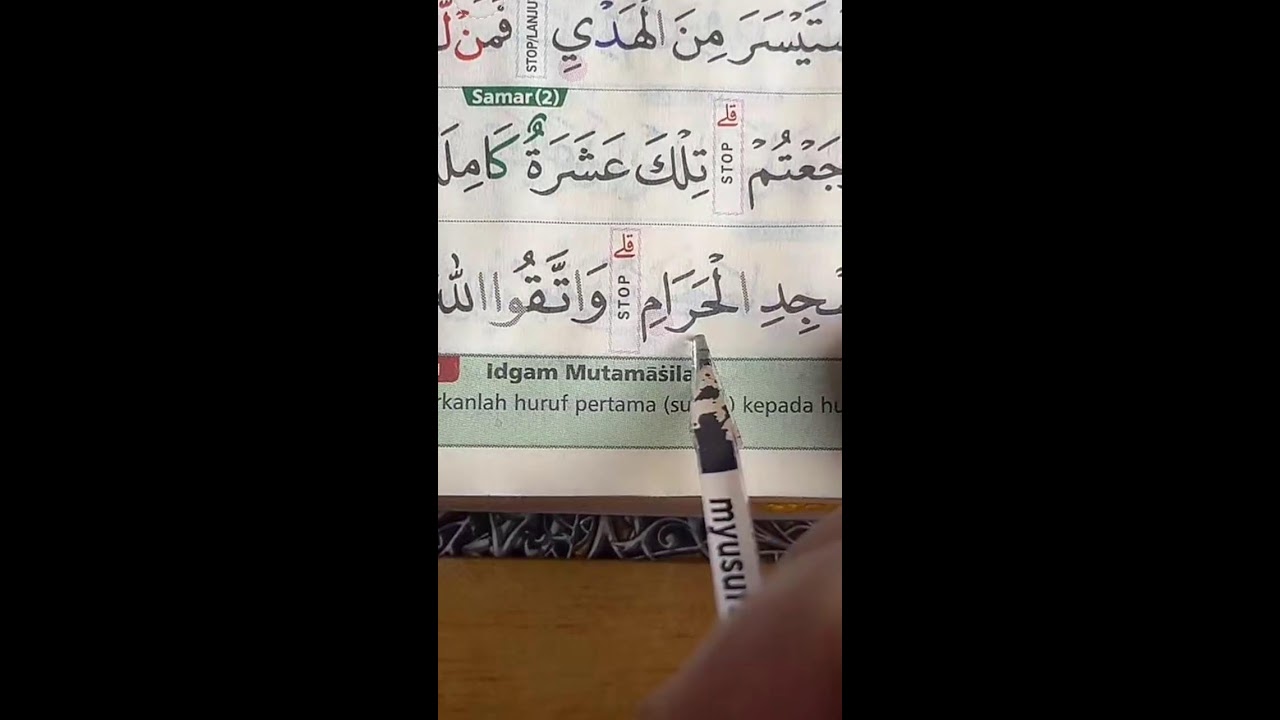 سْتَيْسَرَ مِنَ الْهَدْيِ STOP/LANJU فَمَنْ لَّ
Samar (2)
جَعْتُمْ قلے STOP تِلْكَ عَشَرَةٌ كَامِلَ
سْجِدِ الْحَرَامِ قلے STOP وَاتَّقُوا اللّٰهَ
Idgam Mutamāṡila
rkanlah huruf pertama (su ) kepada hu
myusu